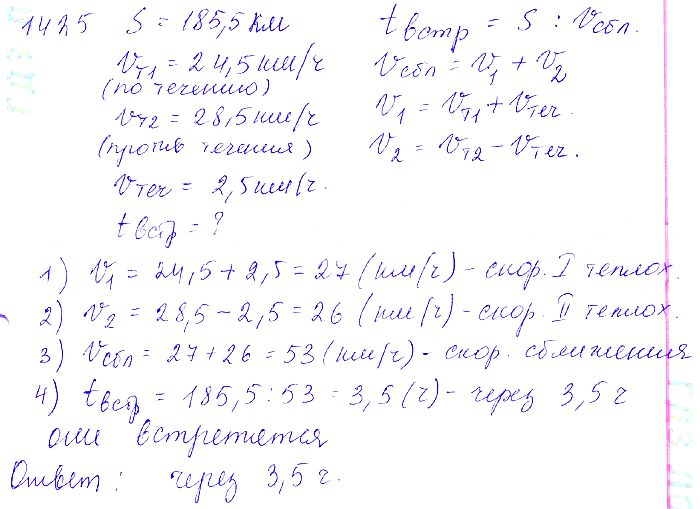 1425 S = 185,5 км
vт1 = 24,5 км/ч
(по течению)
vт2 = 28,5 км/ч
(против течения)
vтеч = 2,5 км/ч.
tвстр = ?
tвстр = S : vсбл.
vсбл = v1 + v2
v1 = vт1 + vтеч.
v2 = vт2 - vтеч.
1) v1 = 24,5 + 2,5 = 27 (км/ч) - скор. I теплох.
2) v2 = 28,5 - 2,5 = 26 (км/ч) - скор. II теплох.
3) vсбл = 27 + 26 = 53 (км/ч) - скор. сближения
4) tвстр = 185,5 : 53 = 3,5 (ч) - через 3,5 ч
они встретятся
Ответ: через 3,5 ч.